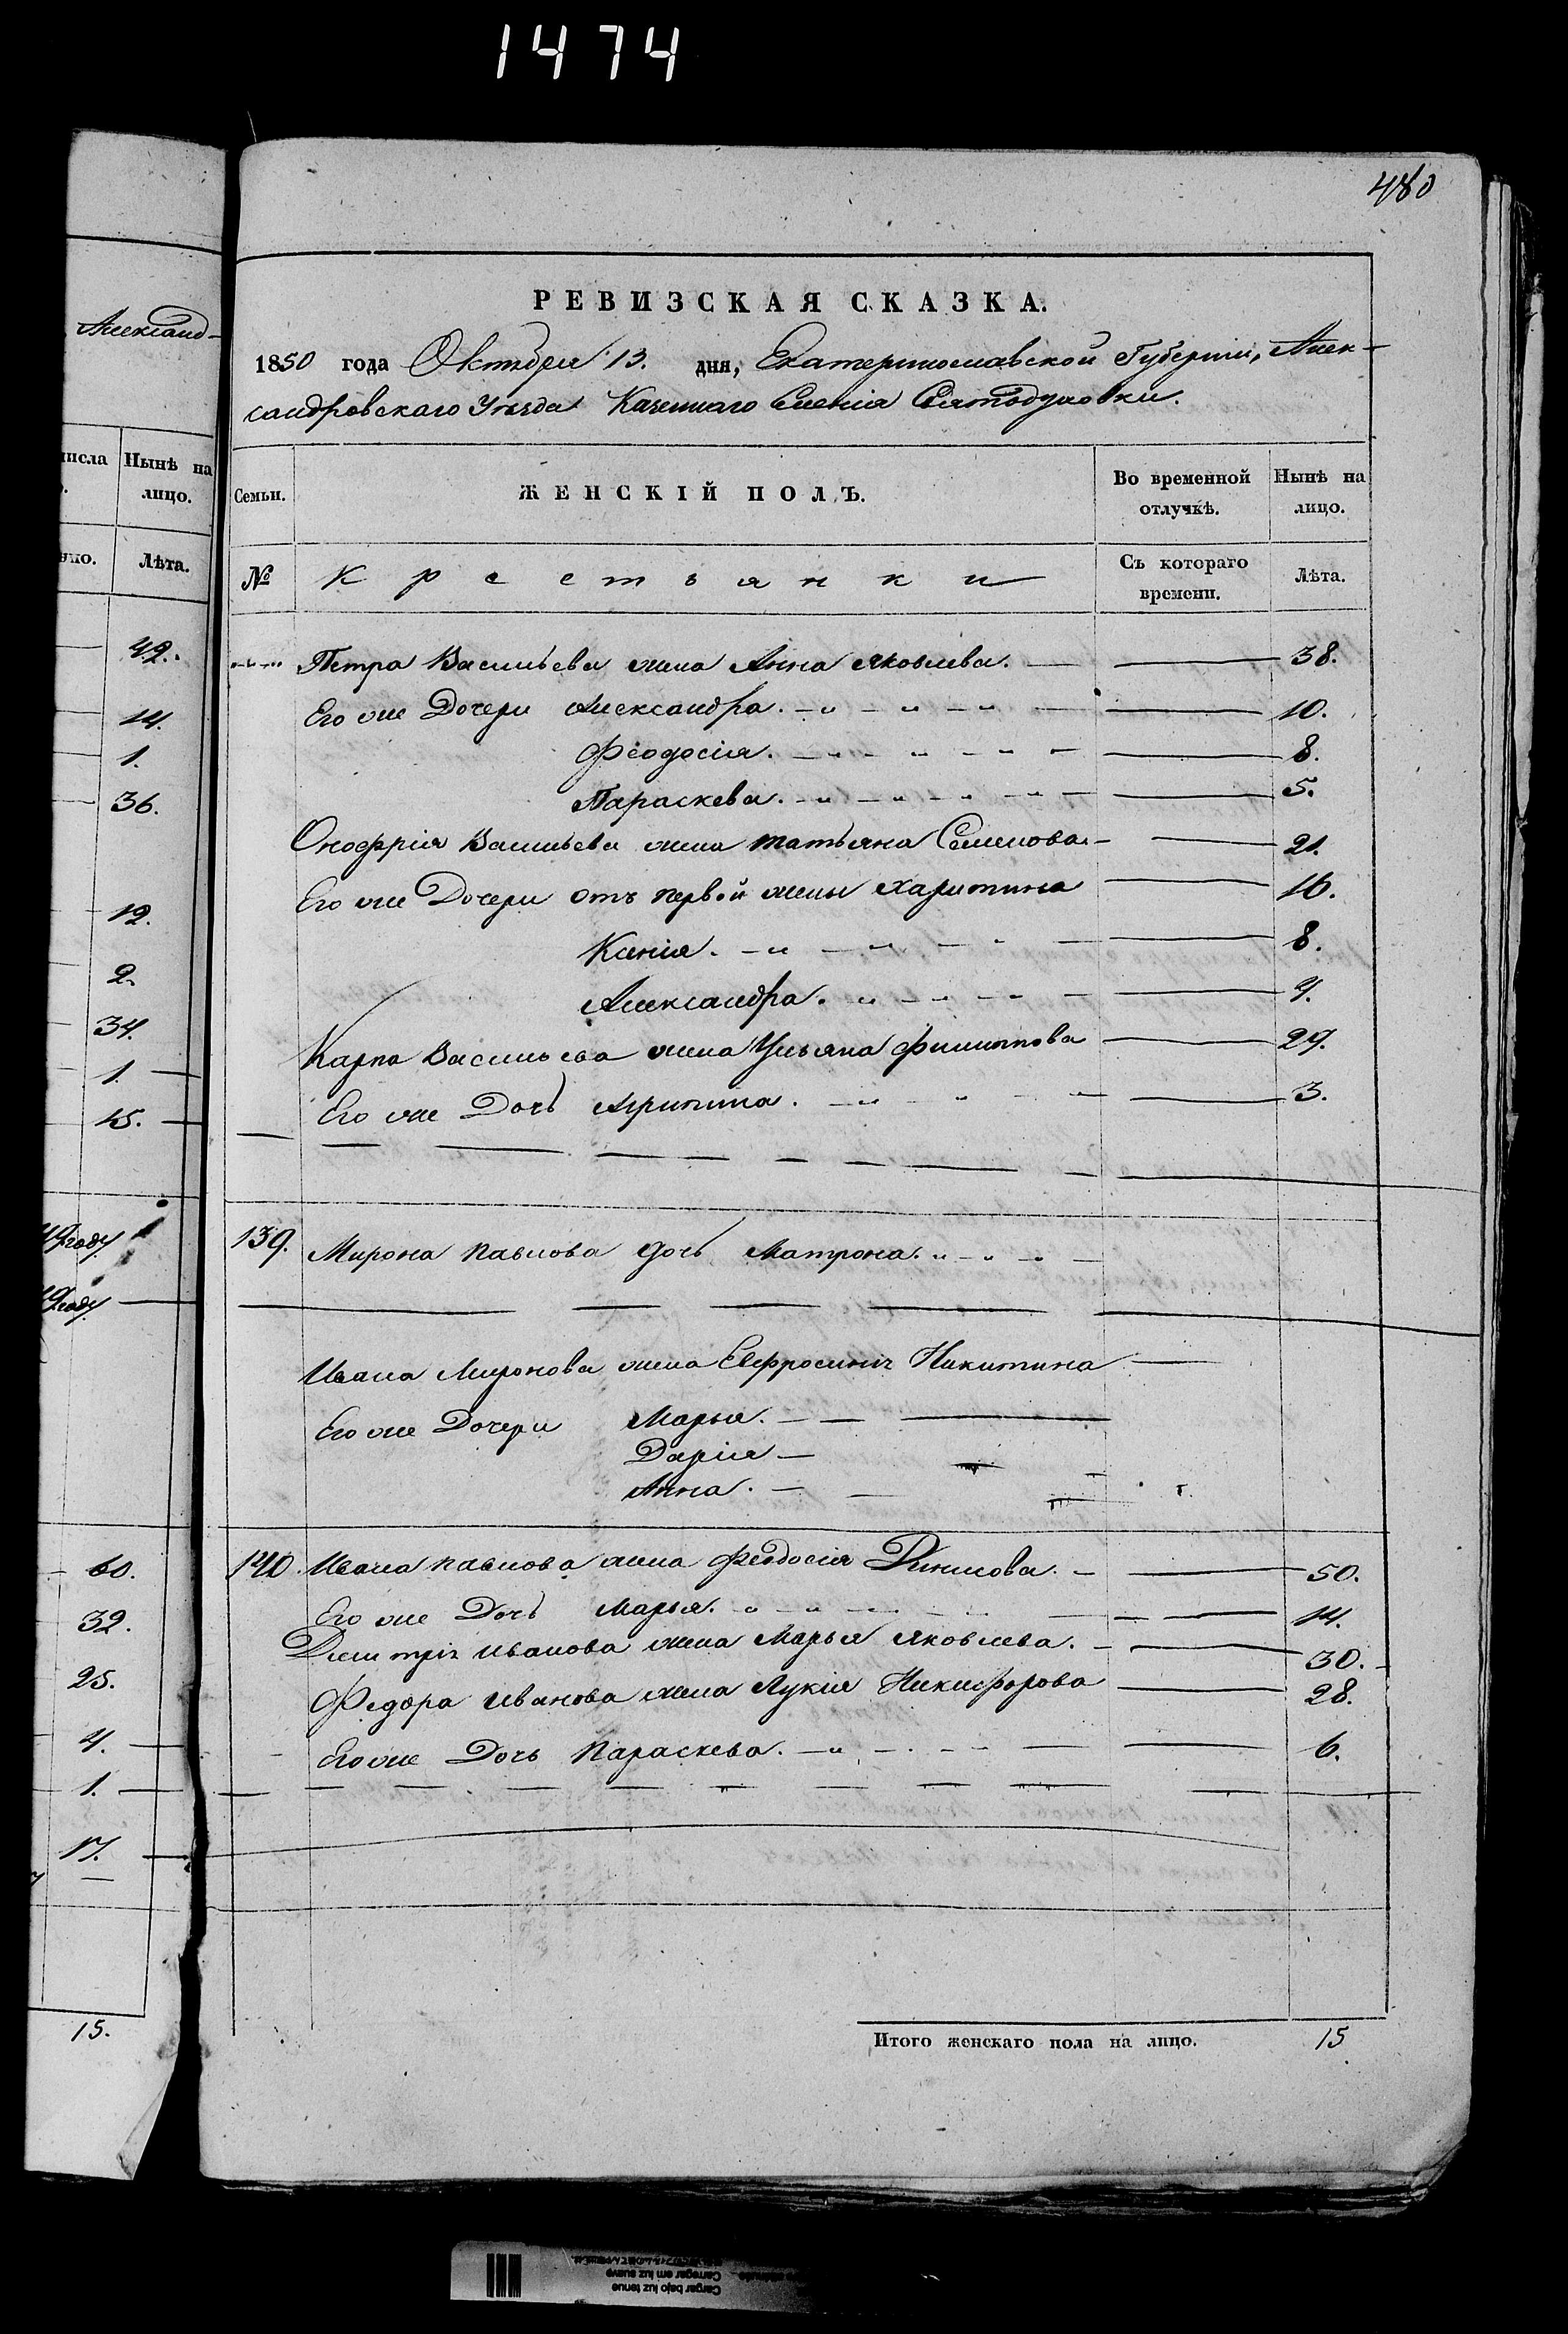 1474
480
Александ-
РЕВИЗСКАЯ СКАЗКА.
1850 года Октября 13. дня, Екатеринославской Губернiи, Алек-
сандровскаго Уѣзда Казеннаго Селенiя Святодуховки.
числа Нынѣ на лицо.
Лѣта.
Семьи.
ЖЕНСКIЙ ПОЛЪ.
Во временной отлучкѣ.
Нынѣ на лицо.
№
Крестьянки
Съ котораго времени.
Лѣта.
42.
14.
1.
36.
12.
2.
34.
1.
15.
49 году
49 году
60.
32.
25.
4.
1.
17.
15.
Петра Васильева жена Анна Яковлева. — 38.
Его же Дочери Александра. — 10.
Феодосiя. — 8.
Параскева. — 5.
Онофрiя Васильева жена Татьяна Семенова — 21.
Его же Дочери отъ первой жены Харитина — 16.
Ксенiя. — 8.
Александра. — 4.
Карпа Васильева жена Ульяна Филиппова — 29.
Его же Дочь Агрипина. — 3.
139. Мирона Павлова дочь Матрона.
Ивана Миронова жена Евфросинiя Никитина —
Его же Дочери Марья. —
Дарiя —
Анна. —
140. Ивана Павлова жена Феодосiя Денисова. — 50.
Его же Дочь Марья. — 14.
Дмитрiя Иванова жена Марья Яковлева. — 30.
Федора Иванова жена Лукiя Никифорова — 28.
Его же Дочь Параскева. — 6.
Итого женскаго пола на лицо. 15
Cargar bajo luz tenue
Carregar em luz suave